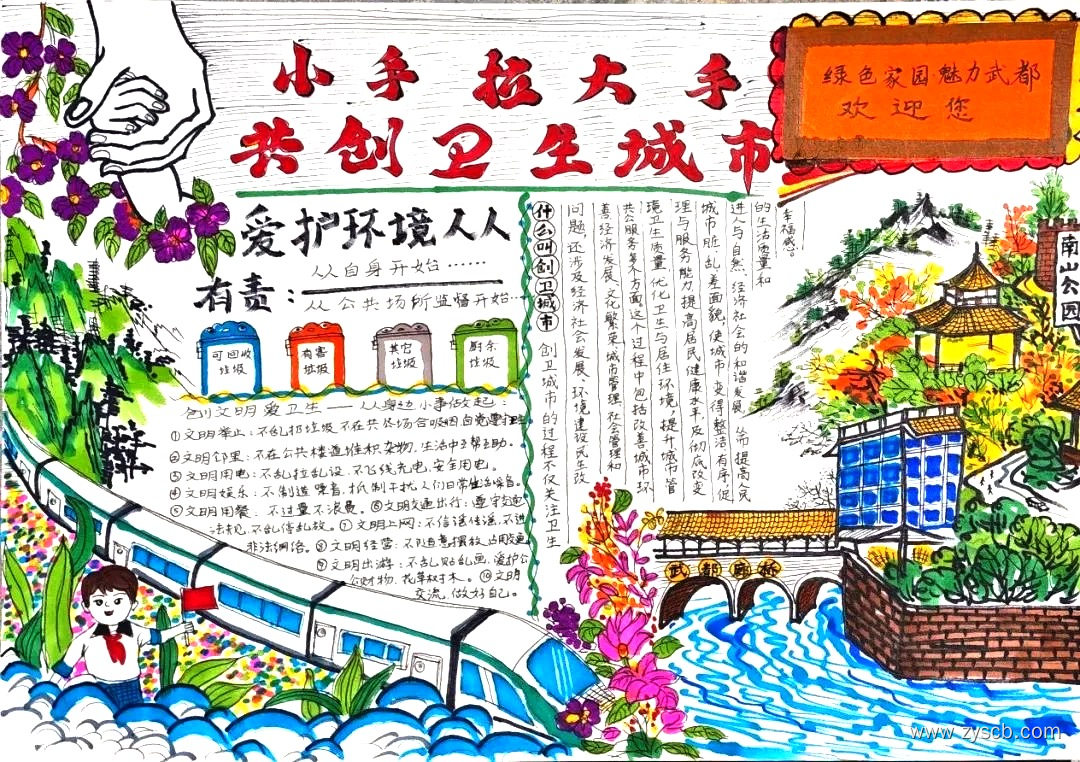 小手拉大手
共创卫生城市
绿色家园魅力武都
欢迎您
爱护环境人人
有责:
从自身开始……
从公共场所监督开始…
可回收
垃圾
有害
垃圾
其它
垃圾
厨余
垃圾
创文明 爱卫生——从身边小事做起:
①文明举止:不乱扔垃圾不在共公场合吸烟自觉
②文明邻里:不在公共楼道堆积杂物,生活中互帮互助。
③文明用电:不乱拉乱设、不飞线充电,安全用电。
④文明娱乐:不制造噪音,抵制干扰人们日常生活噪音。
⑤文明用餐:不过量不浪费。⑥文明交通出行:遵守交通
法规,不乱停乱放。⑦文明上网:不信谣传谣,不进
非法网络。⑧文明经营:不随意摆放占用交通
⑨文明出游:不乱贴乱画,爱护公
公财物,花草树木。⑩文明
交流,做好自己。
什么叫创卫城市
创卫城市的过程不仅关注卫生
问题,还涉及经济社会发展、环境建设民生改
善经济发展、文化繁荣城市管理社会管理和
共公服务多个方面。这个过程中包括改善城市环
境卫生质量,优化卫生与居住环境,提升城市管
理与服务能力提高居民健康水平及彻底改变
城市脏乱差面貌,使城市变得整洁有序,促
进人与自然、经济社会的和谐发展,从而提高人民
的生活质量和
幸福感。
南山公园
武都廊桥
www.zyscb.com